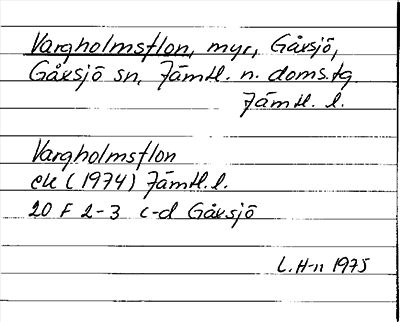 Vargholmsflon, myr, Gåxsjö,
Gåxsjö sn, Jämtl. n. doms.tg
Jämtl. l.
Vargholmsflon
ek (1974) Jämtl.l.
20 F 2-3 c-d Gåxsjö
L.H-n 1975